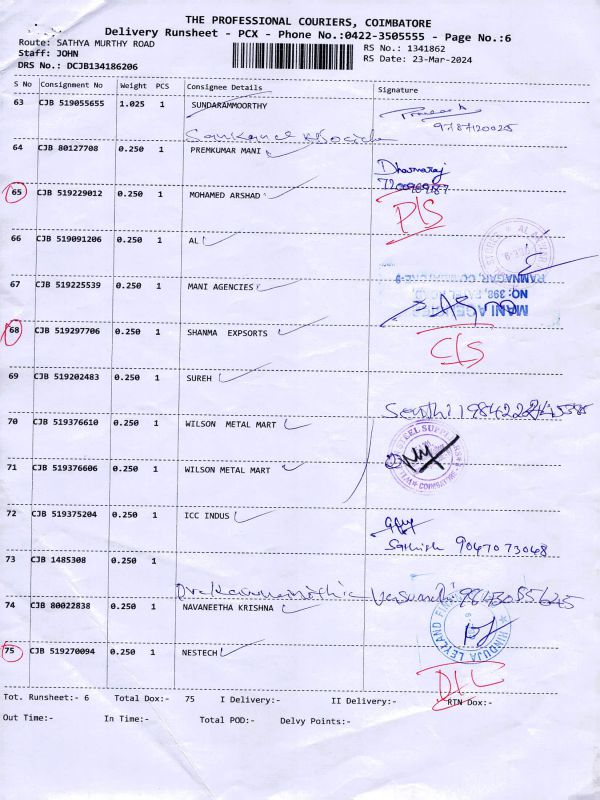 THE PROFESSIONAL COURIERS, COIMBATORE
Delivery Runsheet - PCX - Phone No.:0422-3505555 - Page No.:6
Route: SATHYA MURTHY ROAD
Staff: JOHN
DRS No.: DCJB134186206
RS No.: 1341862
RS Date: 23-Mar-2024
S No Consignment No Weight PCS Consignee Details Signature
63 CJB 519055655 1.025 1 SUNDARAMMOORTHY
9787120025
64 CJB 80127708 0.250 1 PREMKUMAR MANI
Dharmaraj
65 CJB 519229012 0.250 1 MOHAMED ARSHAD
P/S
66 CJB 519091206 0.250 1 AL
67 CJB 519225539 0.250 1 MANI AGENCIES
RAMNAGAR, COIMBATORE-9
NO: 398,
MANI AGE
68 CJB 519297706 0.250 1 SHANMA EXPSORTS
C/S
69 CJB 519202483 0.250 1 SUREH
Senthil
70 CJB 519376610 0.250 1 WILSON METAL MART
STEEL SUPPLIERS
COIMBATORE
71 CJB 519376606 0.250 1 WILSON METAL MART
72 CJB 519375204 0.250 1 ICC INDUS
Sathish 9047073048
73 CJB 1485308 0.250 1
74 CJB 80022838 0.250 1 NAVANEETHA KRISHNA
HINDUJA LEYLAND FIN
75 CJB 519270094 0.250 1 NESTECH
D/L
Tot. Runsheet:- 6 Total Dox:- 75 I Delivery:- II Delivery:- RTN Dox:-
Out Time:- In Time:- Total POD:- Delvy Points:-